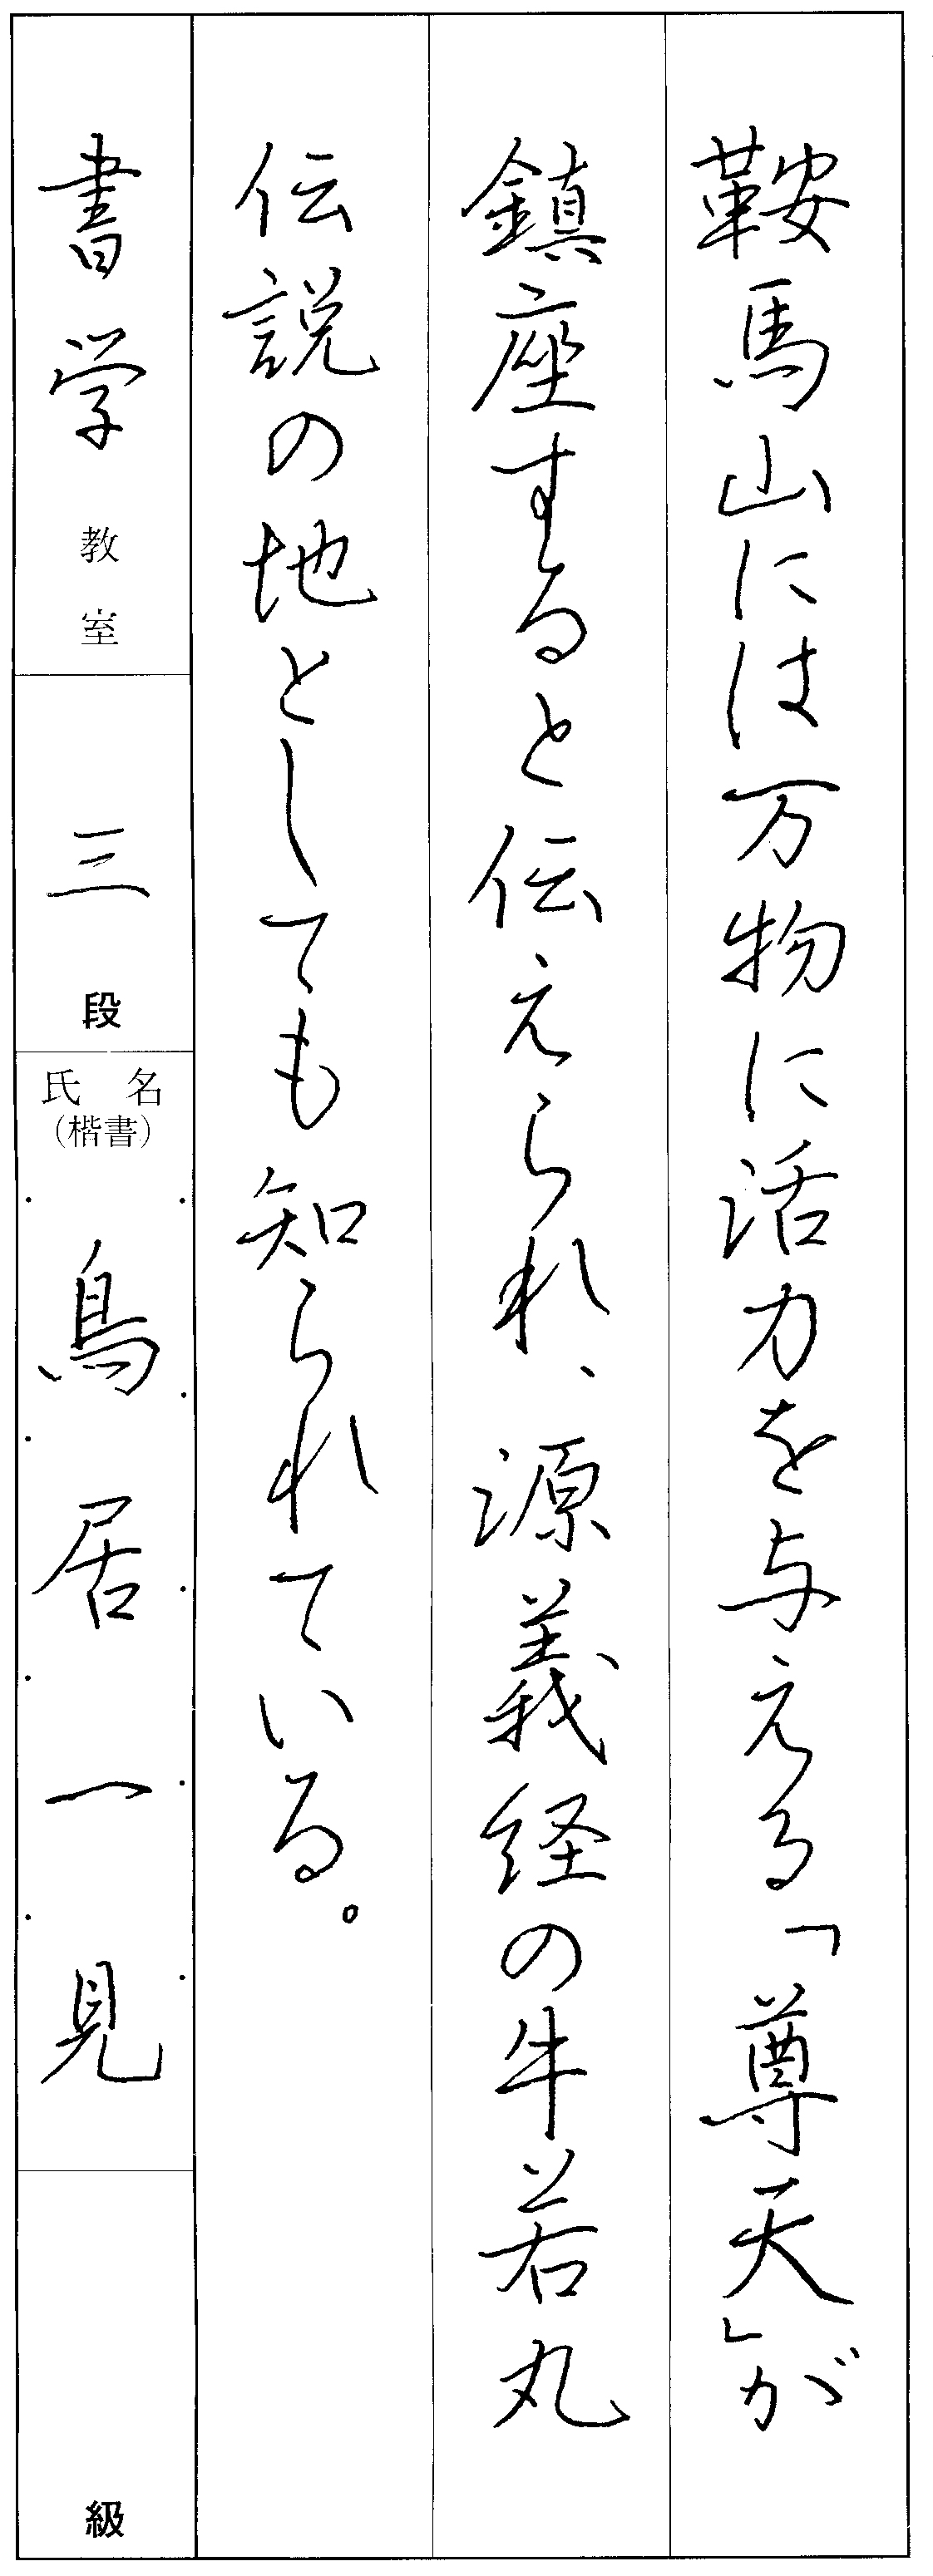 鞍馬山には万物に活力を与える「尊天」が
鎮座すると伝えられ、源義経の牛若丸
伝説の地としても知られている。
書学教室
三段
氏名
（楷書）
鳥居一見
級